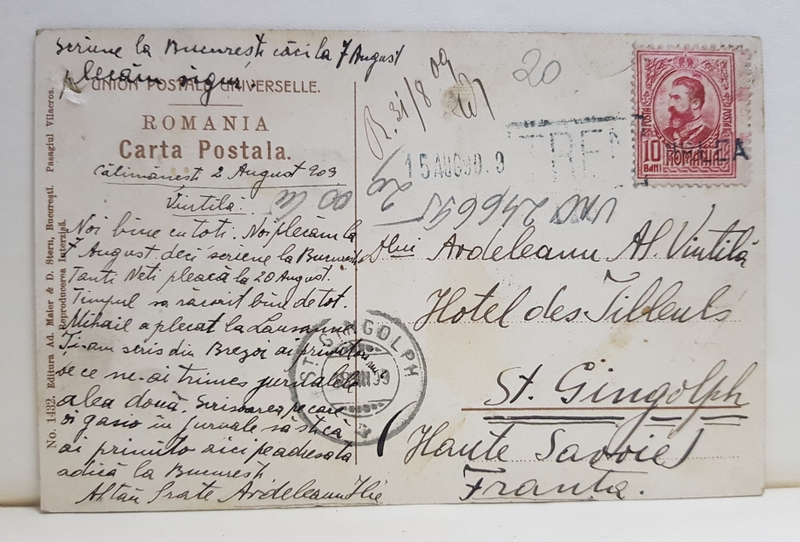 Scriene la București căci la 7 August
plecăm sigur.
UNION POSTALE UNIVERSELLE.
ROMANIA
Carta Postala.
Călimănești 2 August 909
Vintilă:
Noi bine cu toti. Noi plecăm la
7 August deci scriene la București
Tanti Neti pleacă la 20 August.
Timpul sa răcorit bine de tot.
Mihail a plecat la Lausanne
Ți-am scris din Brezoi ai primit
De ce ne-ai trimes jurnalele
alea două. Scrisoarea pe care
o gasio in jurnale sa stică
ai primit-o aici pe adresata
adică la București
Al tău Frate Ardeleanu Ilie
No. 1432. Editura Ad. Maier & D. Stern, București. Pasagiul Vilacros.
Reproducerea Interzisă.
R. 31/8 09
20
15 AUG 909
TREN
VALCEA
POSTA
10
BANI
ROMANIA
Dlui Ardeleanu Al. Vintilă
Hotel des Tilleuls
St. Gingolph
(Haute Savoie)
Franta.
ST. GINGOLPH